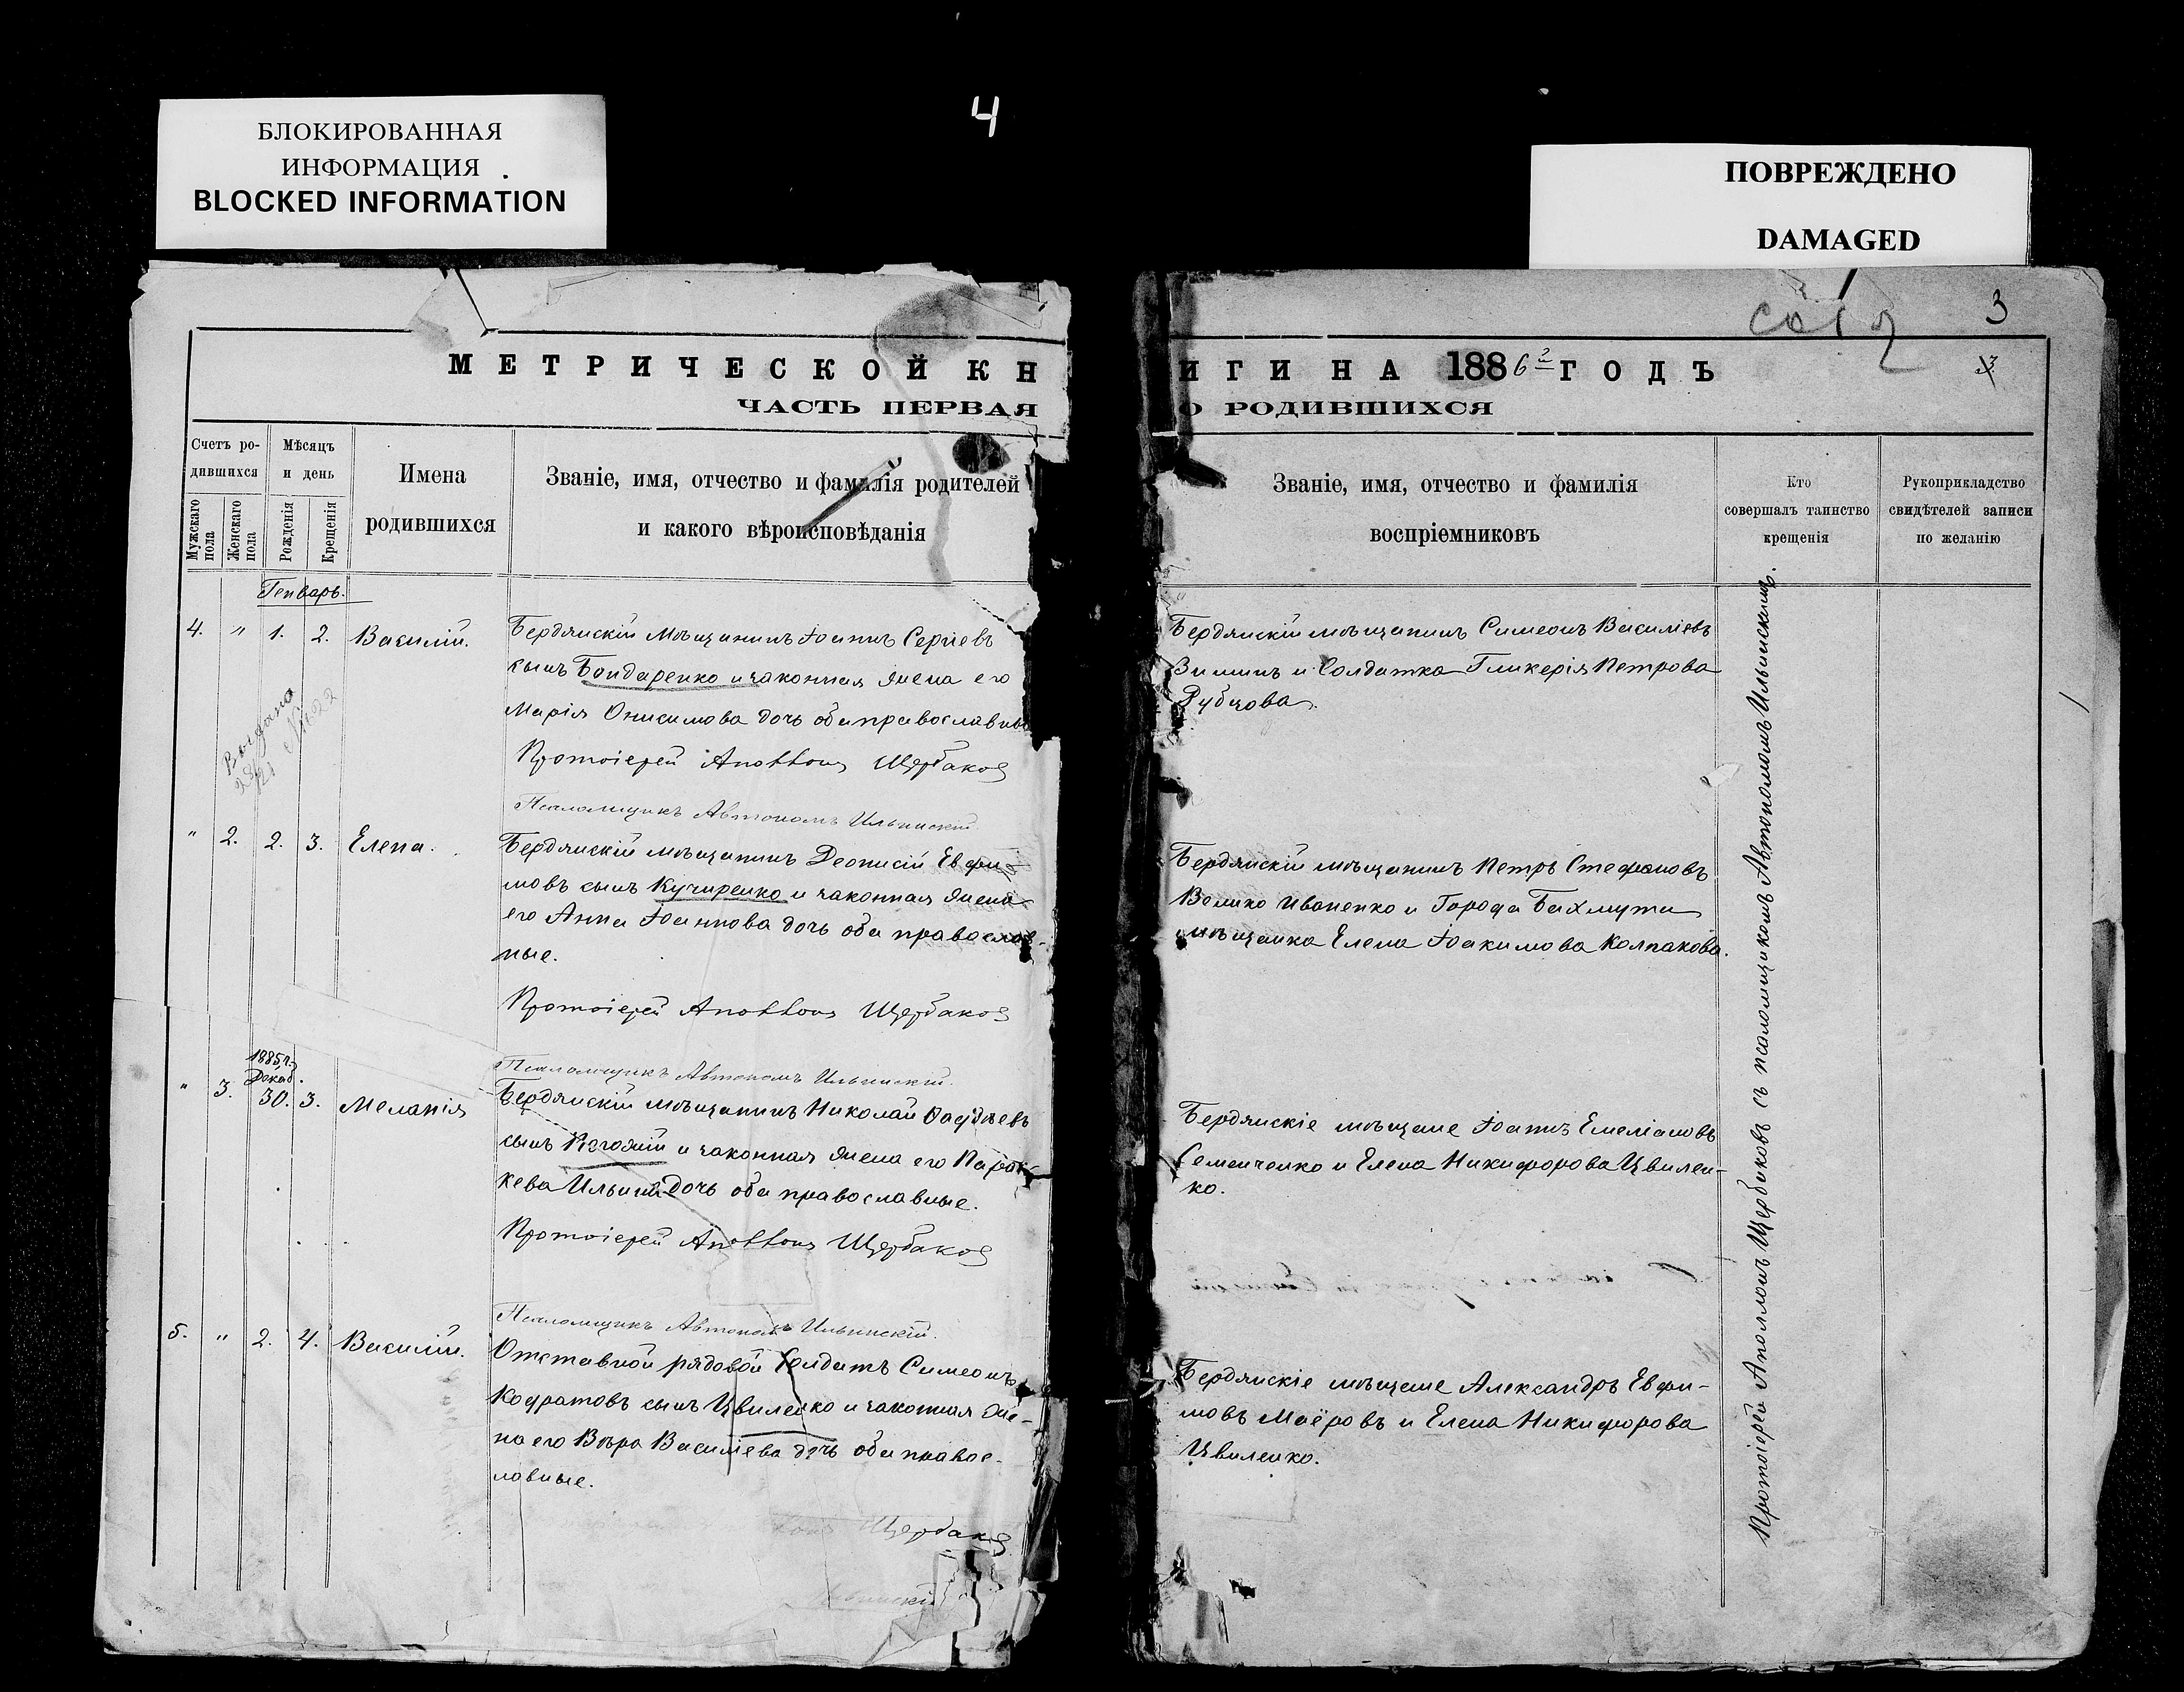 БЛОКИРОВАННАЯ
ИНФОРМАЦИЯ
BLOCKED INFORMATION
4
ПОВРЕЖДЕНО
DAMAGED
3
3
МЕТРИЧЕСКОЙ КН
ЧАСТЬ ПЕРВАЯ
Счетъ ро-
дившихся
Мѣсяцъ
и день
Мужскаго пола
Женскаго пола
Рожденія
Крещенія
Имена
родившихся
Званіе, имя, отчество и фамилія родителей
и какого вѣроисповѣданія
Генварь.
4. " 1. 2. Василій.
Бердянскій мѣщанинъ Іоаннъ Сергіевъ
сынъ Бондаренко и законная жена его
Марія Онисимова дочь оба православные
Протоіерей Аполлонъ Щербаковъ
Псаломщикъ Автономъ Ильинскій
" 2. 2. 3. Елена.
Бердянскій мѣщанинъ Деонисій Евфи-
мовъ сынъ Кучиренко и законная жена
его Анна Іоаннова дочь оба православ-
ные.
Протоіерей Аполлонъ Щербаковъ
Псаломщикъ Автономъ Ильинскій.
1885 г.
Декаб.
" 3. 30. 3. Меланія
Бердянскій мѣщанинъ Николай
сынъ и законная жена его Парас-
кева Ильина дочь оба православные.
Протоіерей Аполлонъ Щербаковъ
Псаломщикъ Автономъ Ильинскій.
5. " 2. 4. Василій.
Отставной рядовой Солдатъ Симеонъ
Кодратовъ сынъ Цвиленко и законная же-
на его Вѣра Василіева дочь оба правос-
лавные.
Щербаковъ
ИГИ НА 1886й ГОДЪ
О РОДИВШИХСЯ
Званіе, имя, отчество и фамилія
воспріемниковъ
Кто
совершалъ таинство
крещенія
Рукоприкладство
свидѣтелей записи
по желанію
Бердянскій мѣщанинъ Симеонъ Василіевъ
Зиминъ и Солдатка Гликерія Петрова
Рубцова.
Бердянскій мѣщанинъ Петръ Стефановъ
Велико Иваненко и Города Бахмута
мѣщанка Елена Іоакимова Колпакова.
Бердянскіе мѣщане Іоаннъ Емеліановъ
Семенченко и Елена Никифорова Цвилен-
ко.
Бердянскіе мѣщане Александръ Евфи-
мовъ Маёровъ и Елена Никифорова
Цвиленко.
Протоіерей Аполлонъ Щербаковъ съ псаломщикомъ Автономомъ Ильинскимъ.